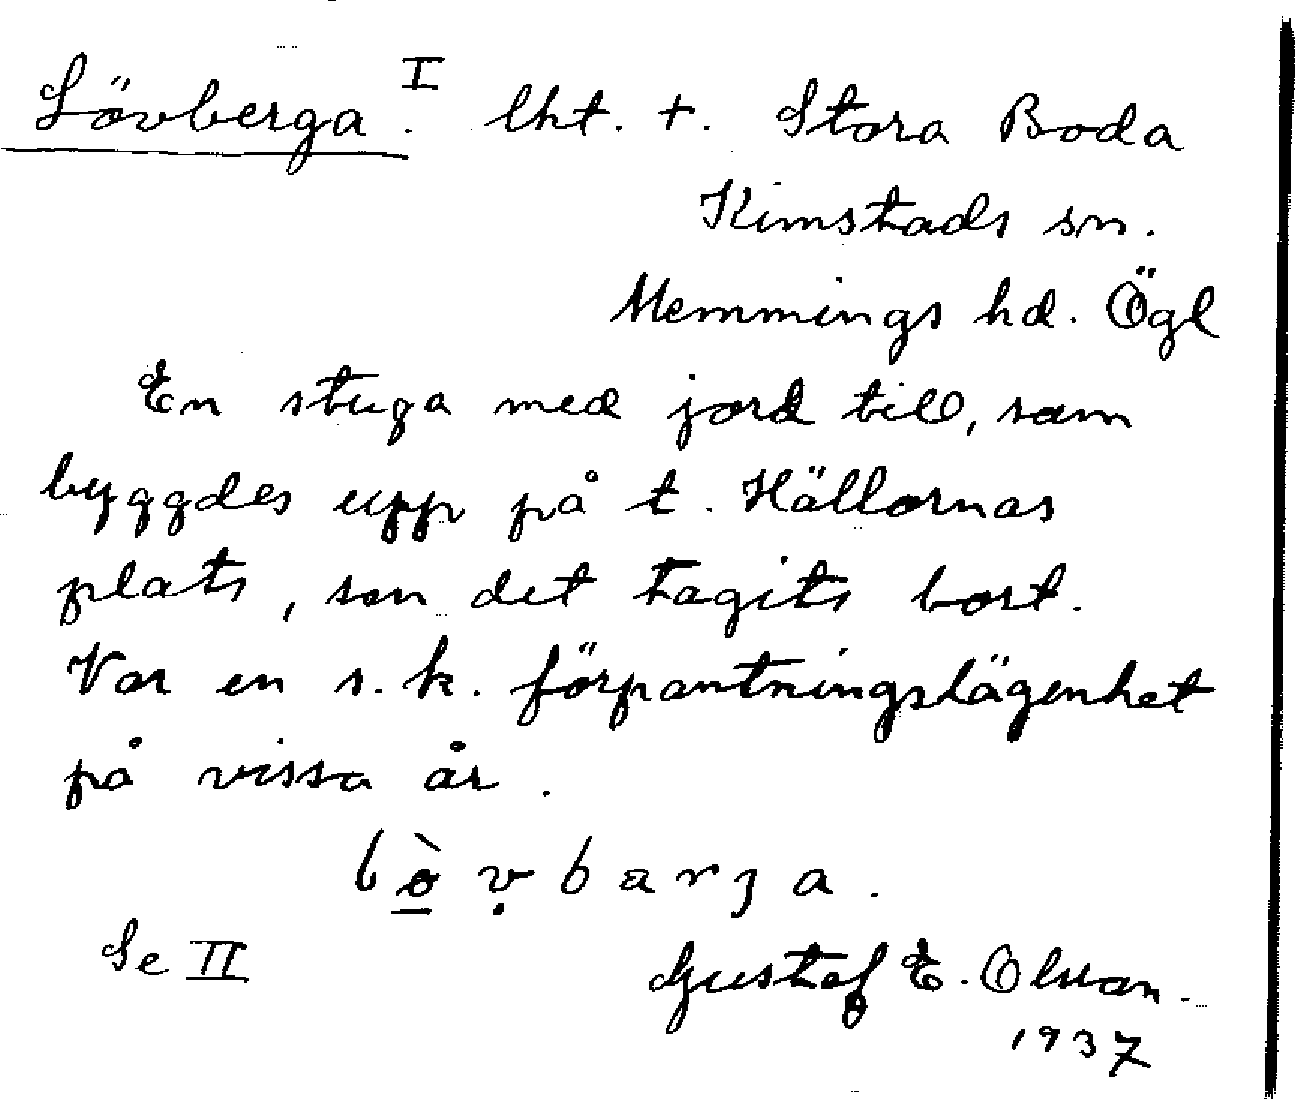 Lövberga. I lht. +. Stora Boda
Kimstads sn.
Memmings hd. Ögl
En stuga med jord till, som
byggdes upp på t. Hällornas
plats, sen det tagits bort.
Var en s.k. förpantningslägenhet
på vissa år.
Se II
Gustaf E. Olsson.
1937